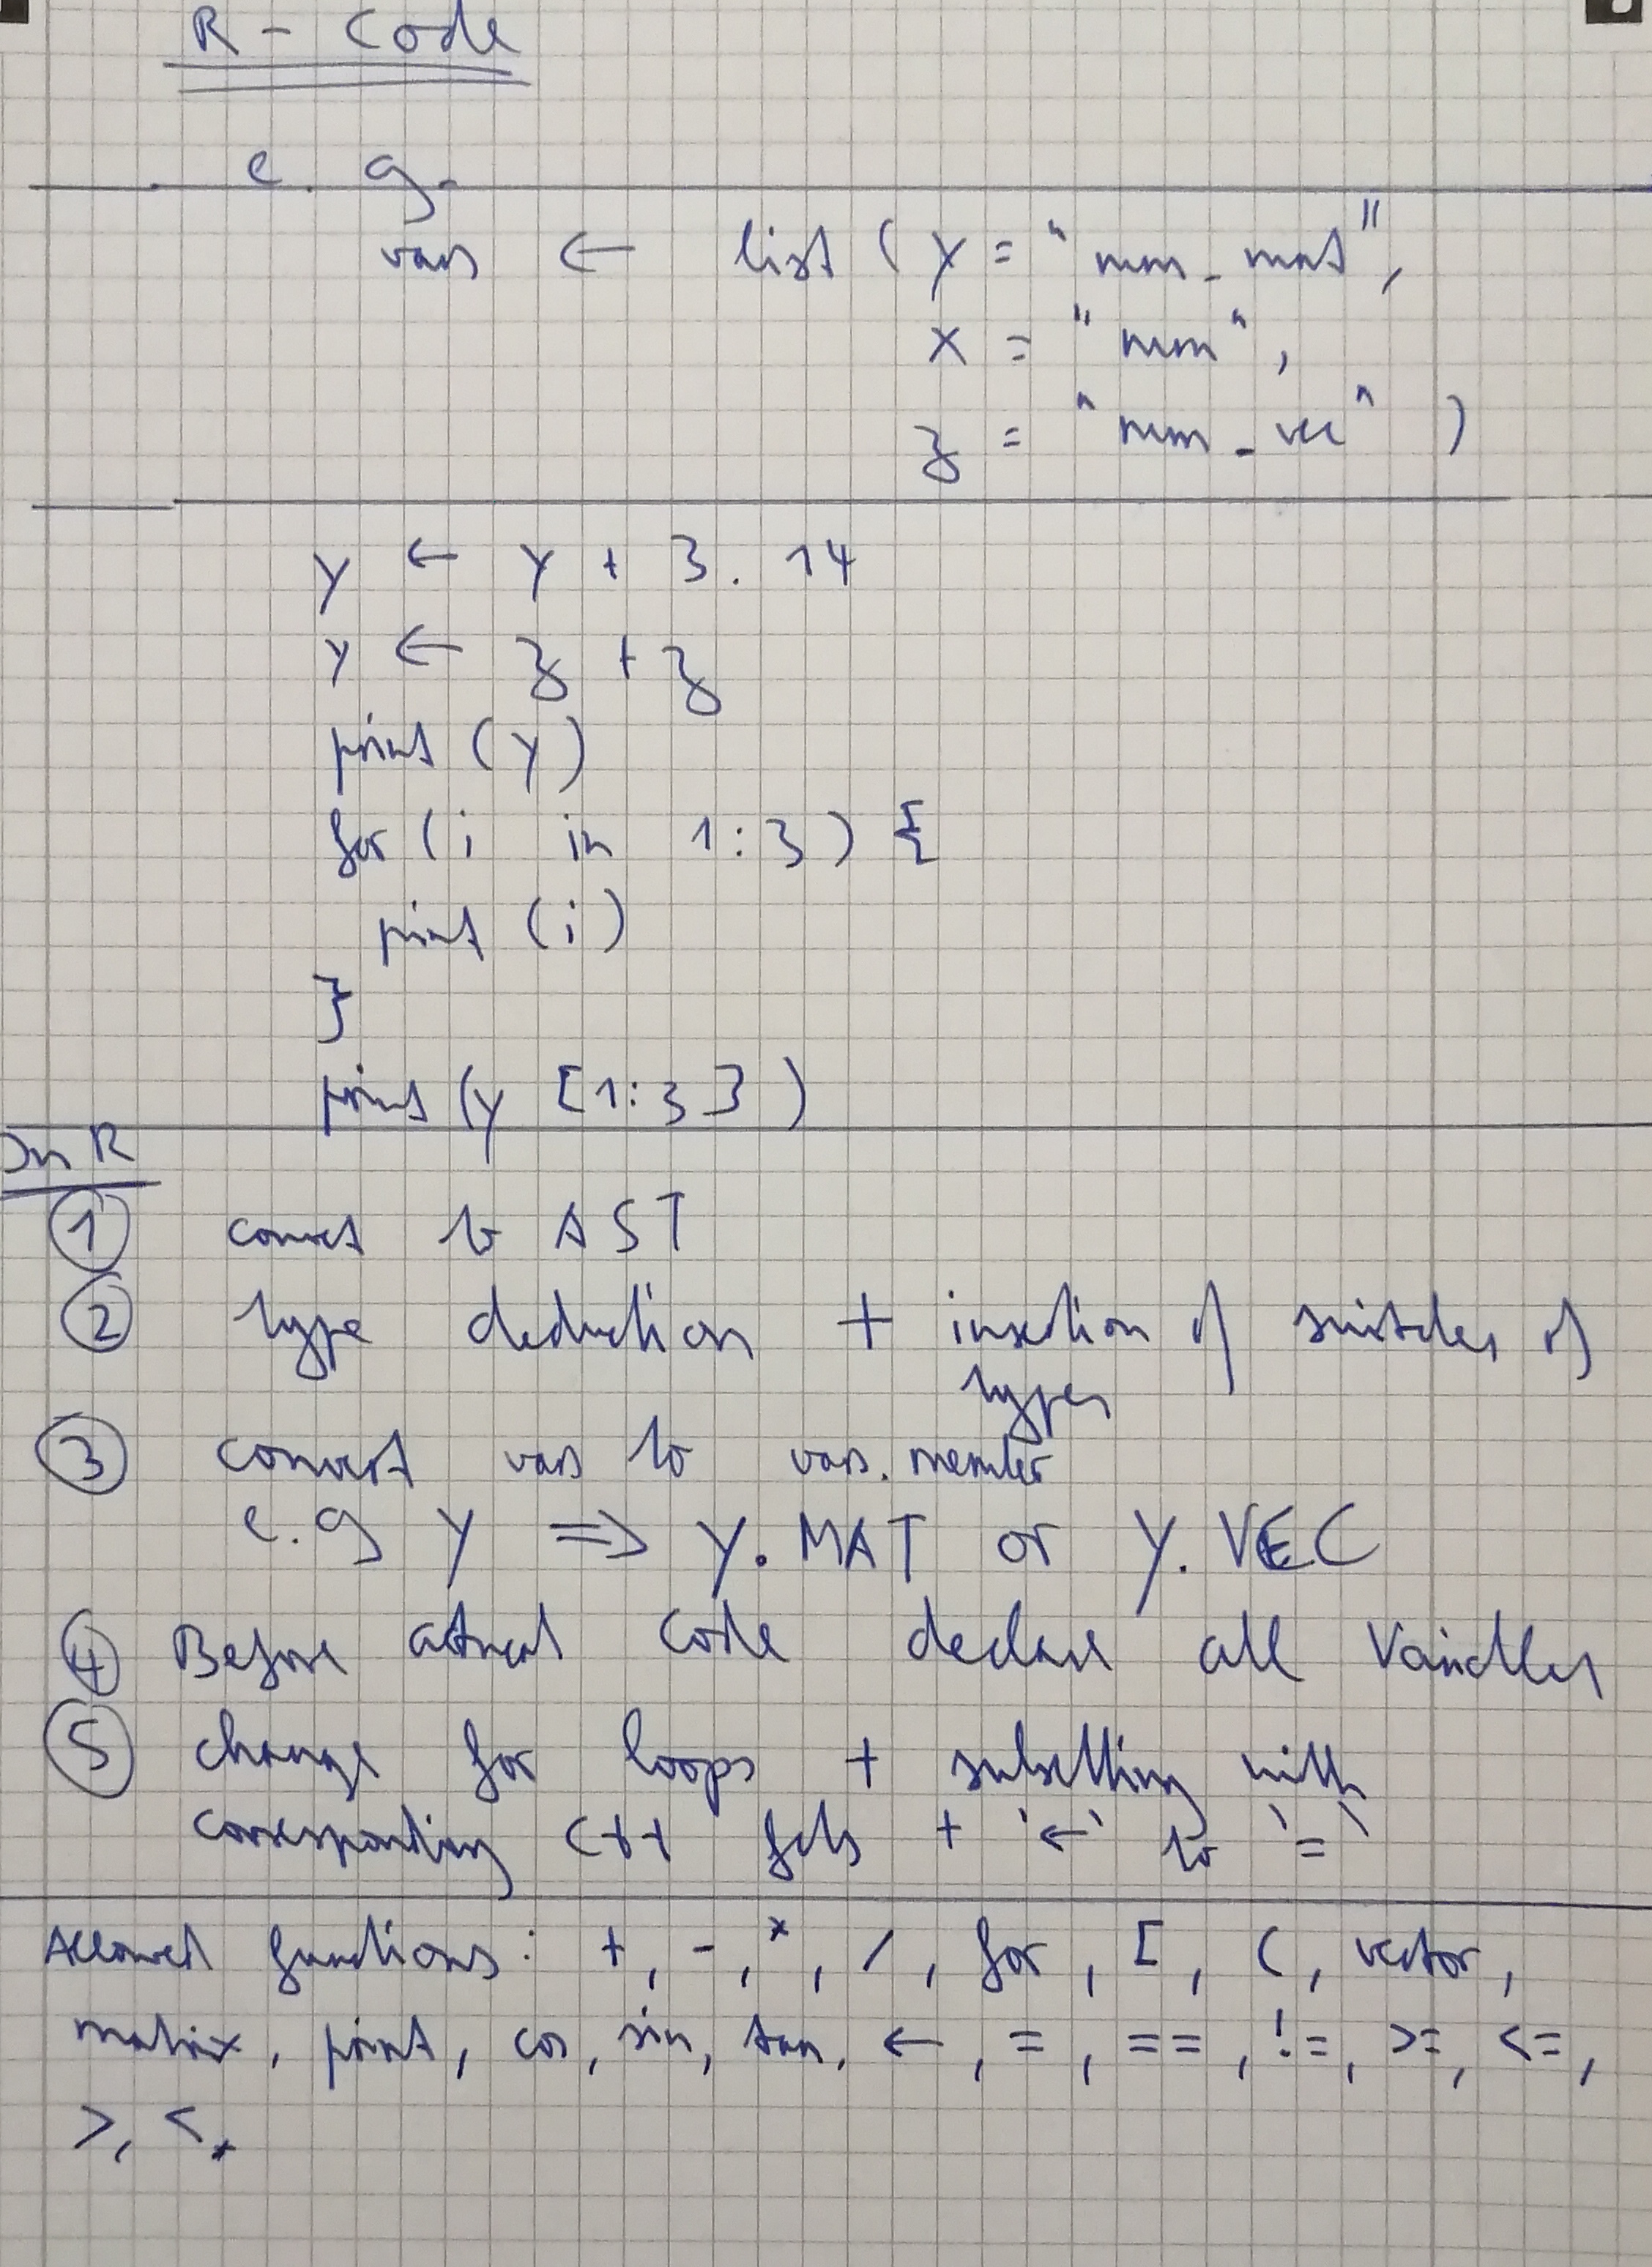 R - Code
e. g.
vars ← list ( y = "num_mat",
x = "num",
z = "num_vec" )
y ← y + 3. 14
y ← z + z
print (y)
for (i in 1:3) {
print (i)
}
print (y [1:3])
In R
① convert to AST
② type deduction + insertion of switches of
types
③ convert vars to vars. member
e.g y ⇒ y. MAT or y. VEC
④ Before actual code declare all Variables
⑤ change for loops + subsetting with
corresponding C++ fcts + '←' to '='
Allowed functions: +, -, *, /, for, [, (, vector,
matrix, print, cos, sin, tan, ←, =, ==, !=, >=, <=,
>, <,